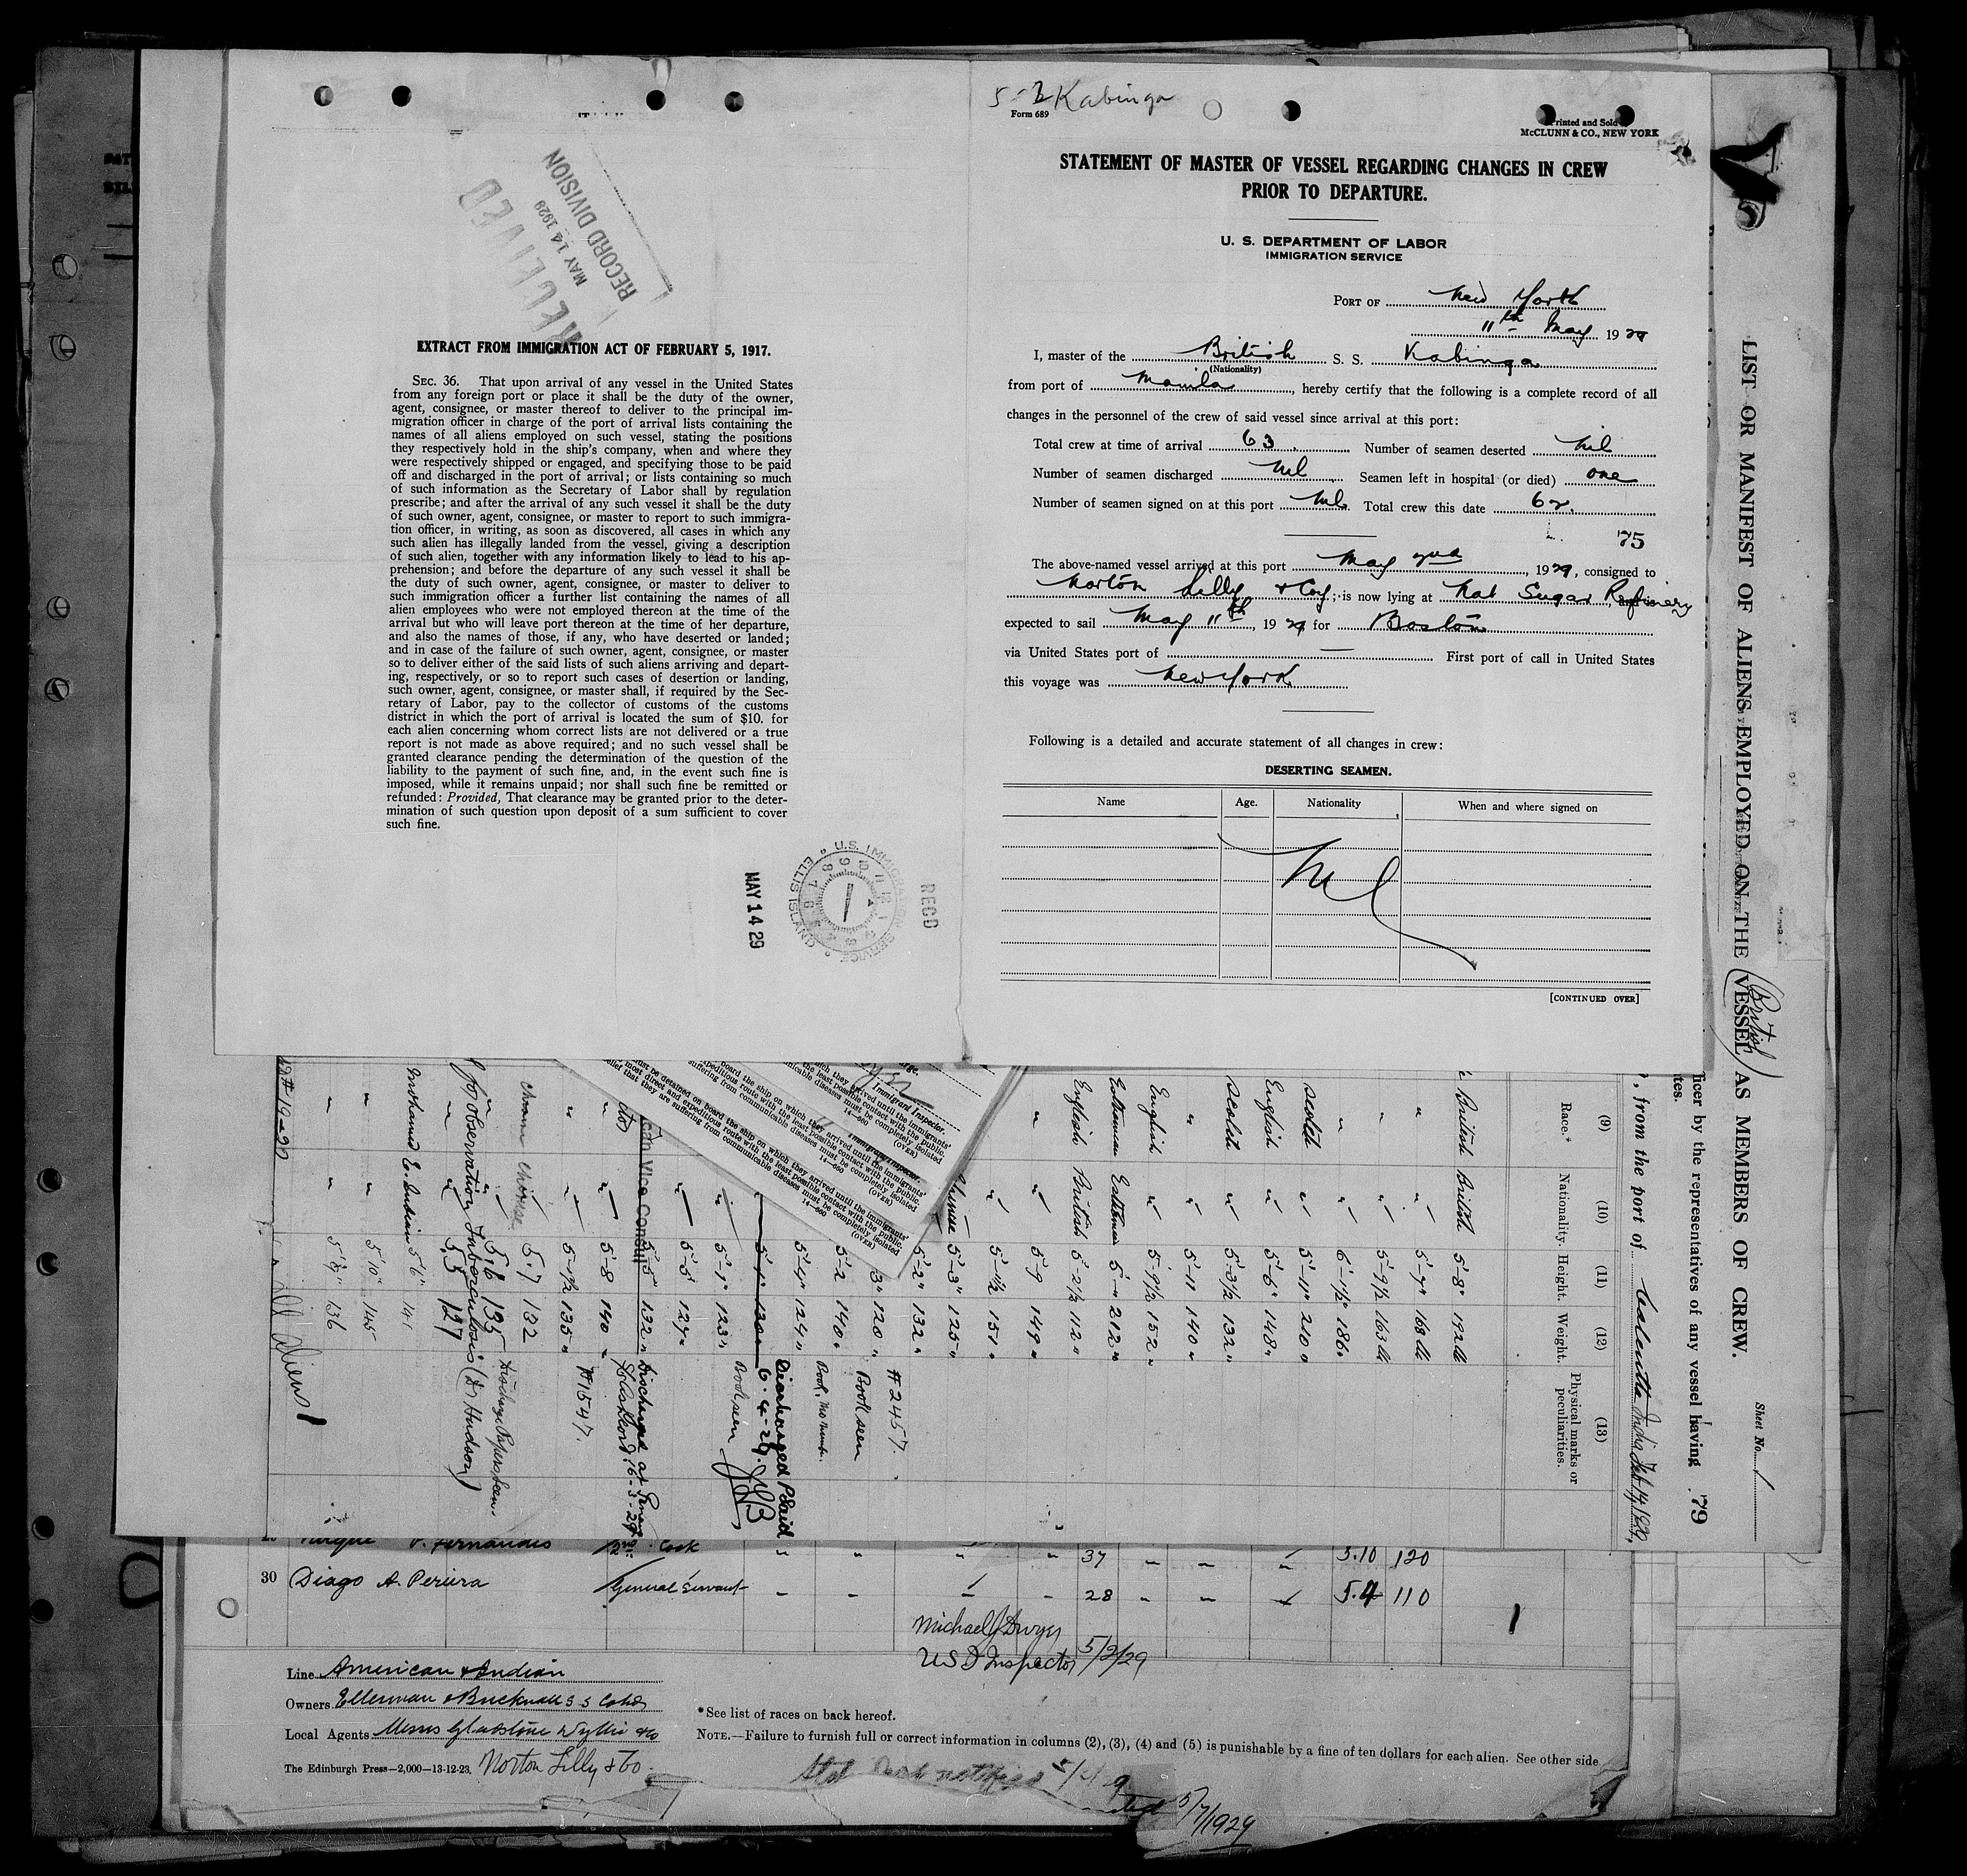 5-2 Kabinga
Form 689
Printed and Sold
McCLUNN & CO., NEW YORK
STATEMENT OF MASTER OF VESSEL REGARDING CHANGES IN CREW
PRIOR TO DEPARTURE.
U. S. DEPARTMENT OF LABOR
IMMIGRATION SERVICE
PORT OF New York
11th May 1929
I, master of the British S. S. Kabinga
(Nationality)
from port of Manila, hereby certify that the following is a complete record of all
changes in the personnel of the crew of said vessel since arrival at this port:
Total crew at time of arrival 63. Number of seamen deserted nil
Number of seamen discharged nil Seamen left in hospital (or died) one
Number of seamen signed on at this port nil Total crew this date 62.
75
The above-named vessel arrived at this port May 2nd, 1929, consigned to
Norton Lilly & Coy; is now lying at Nat Sugar Refinery
expected to sail May 11th, 1929 for Boston
via United States port of — First port of call in United States
this voyage was New York
Following is a detailed and accurate statement of all changes in crew:
DESERTING SEAMEN.
Name Age. Nationality When and where signed on
Nil
[CONTINUED OVER]
RECEIVED
MAY 14 1929
RECORD DIVISION
EXTRACT FROM IMMIGRATION ACT OF FEBRUARY 5, 1917.
SEC. 36. That upon arrival of any vessel in the United States
from any foreign port or place it shall be the duty of the owner,
agent, consignee, or master thereof to deliver to the principal im-
migration officer in charge of the port of arrival lists containing the
names of all aliens employed on such vessel, stating the positions
they respectively hold in the ship's company, when and where they
were respectively shipped or engaged, and specifying those to be paid
off and discharged in the port of arrival; or lists containing so much
of such information as the Secretary of Labor shall by regulation
prescribe; and after the arrival of any such vessel it shall be the duty
of such owner, agent, consignee, or master to report to such immigra-
tion officer, in writing, as soon as discovered, all cases in which any
such alien has illegally landed from the vessel, giving a description
of such alien, together with any information likely to lead to his ap-
prehension; and before the departure of any such vessel it shall be
the duty of such owner, agent, consignee, or master to deliver to
such immigration officer a further list containing the names of all
alien employees who were not employed thereon at the time of the
arrival but who will leave port thereon at the time of her departure,
and also the names of those, if any, who have deserted or landed;
and in case of the failure of such owner, agent, consignee, or master
so to deliver either of the said lists of such aliens arriving and depart-
ing, respectively, or so to report such cases of desertion or landing,
such owner, agent, consignee, or master shall, if required by the Sec-
retary of Labor, pay to the collector of customs of the customs
district in which the port of arrival is located the sum of $10. for
each alien concerning whom correct lists are not delivered or a true
report is not made as above required; and no such vessel shall be
granted clearance pending the determination of the question of the
liability to the payment of such fine, and, in the event such fine is
imposed, while it remains unpaid; nor shall such fine be remitted or
refunded: Provided, That clearance may be granted prior to the deter-
mination of such question upon deposit of a sum sufficient to cover
such fine.
MAY 14 29
U.S. IMMIGRATION SERVICE ELLIS ISLAND
RECD
LIST OR MANIFEST OF ALIENS EMPLOYED ON THE VESSEL AS MEMBERS OF CREW.
British
Sheet No. 1
ficer by the representatives of any vessel having
79
, from the port of Calcutta India Feb 14, 1929,
(9) (10) (11) (12) (13)
Race.* Nationality. Height. Weight. Physical marks or
peculiarities.
British British 5-8" 192 lb
" " 5-7" 168 lb
" " 5-9½ 163 lb
" " 6-1½" 186"
Scotch " 5-11" 210"
English " 5-6" 148"
Scotch " 5-3½ 132"
" " 5-11 140"
English " 5-9½ 152"
Esthonian Esthonian 5-" 212"
English British 5-2½ 112"
" " 5-9 149"
" 5-1½ 151"
5-3" 125"
5-2" 132"
3" 120" #2457.
5-2 140" Book seen
5-4" 124" Book, no number
5-1" 130" Discharged P Said
6-4-29. JHB
5-1" 123" Book seen
5-5" 124"
5-5" 132"
5-8 140"
5-1½ 135" #1547.
Chinese 5.7 132
5.6 135 Discharge Papers Seen.
5.5 127
for observation Tuberculosis (Dr Hudson)
E. Indian 5'6"
" " 5'10" 145
" " 136
board the ship on which they arrived until the immigrants'
expeditious route with the least possible contact with the public.
suffering from communicable diseases must be completely isolated
(OVER)
14—660
Immigrant Inspector.
V. Fernandes 2nd Cook " " " " 37 " " " 5.10 120
30 Diago A. Pereira General Servant " " " " 28 " " " 5.4 110
Michael J Dwyer
US I Inspector 5/2/29
Line American & Indian
Owners Ellerman & Bucknall S S Co
Local Agents Messrs Gladstone Wyllie & Co
The Edinburgh Press—2,000—13-12-23. Norton Lilly & Co.
*See list of races on back hereof.
NOTE.—Failure to furnish full or correct information in columns (2), (3), (4) and (5) is punishable by a fine of ten dollars for each alien. See other side
5/7/1929